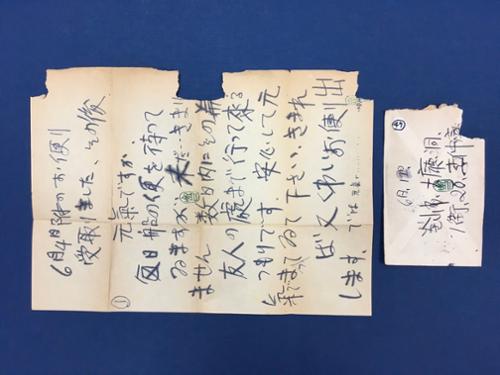 ①
6月4日附のお便り
受取りました、その後
元気ですか
毎日船の便を待って
ゐますが 未だきまり
ません 数日内にその為
友人の處まで行って来る
つもりです. 安心して元
気でまってゐて下さい. きまれ
ば 又くわしいお便り出
します. では
6月12日